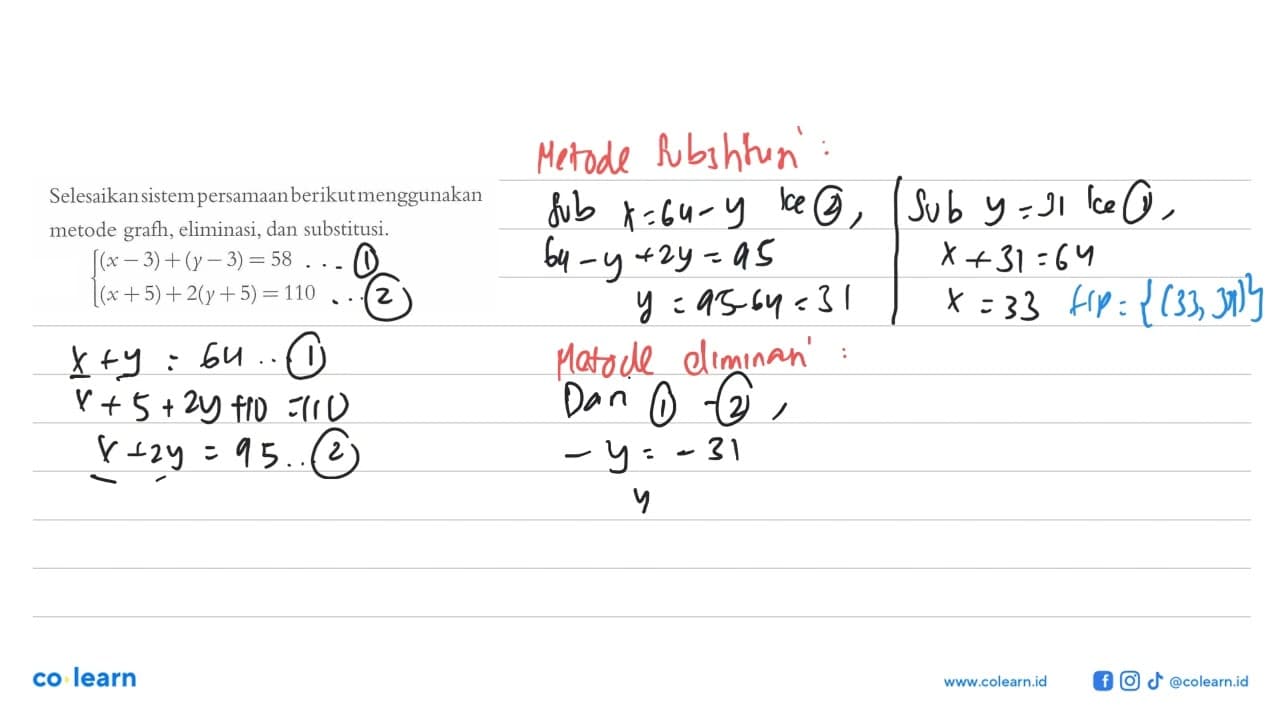 Selesaikan sistem persamaan berikut menggunakan
metode grafh, eliminasi, dan substitusi.
(x − 3) + (y − 3) = 58 ... ①
(x + 5) + 2(y + 5) = 110 ... ②
x + y = 64 .. ①
x + 5 + 2y + 10 = 110
x + 2y = 95 .. ②
Metode Substitusi :
Sub x = 64 - y ke ②,
64 - y + 2y = 95
y = 95 - 64 = 31
Sub y = 31 ke ①,
x + 31 = 64
x = 33 HP = {(33, 31)}
Metode eliminasi :
Dari ① - ②,
- y = - 31
y
co learn
www.colearn.id
@colearn.id